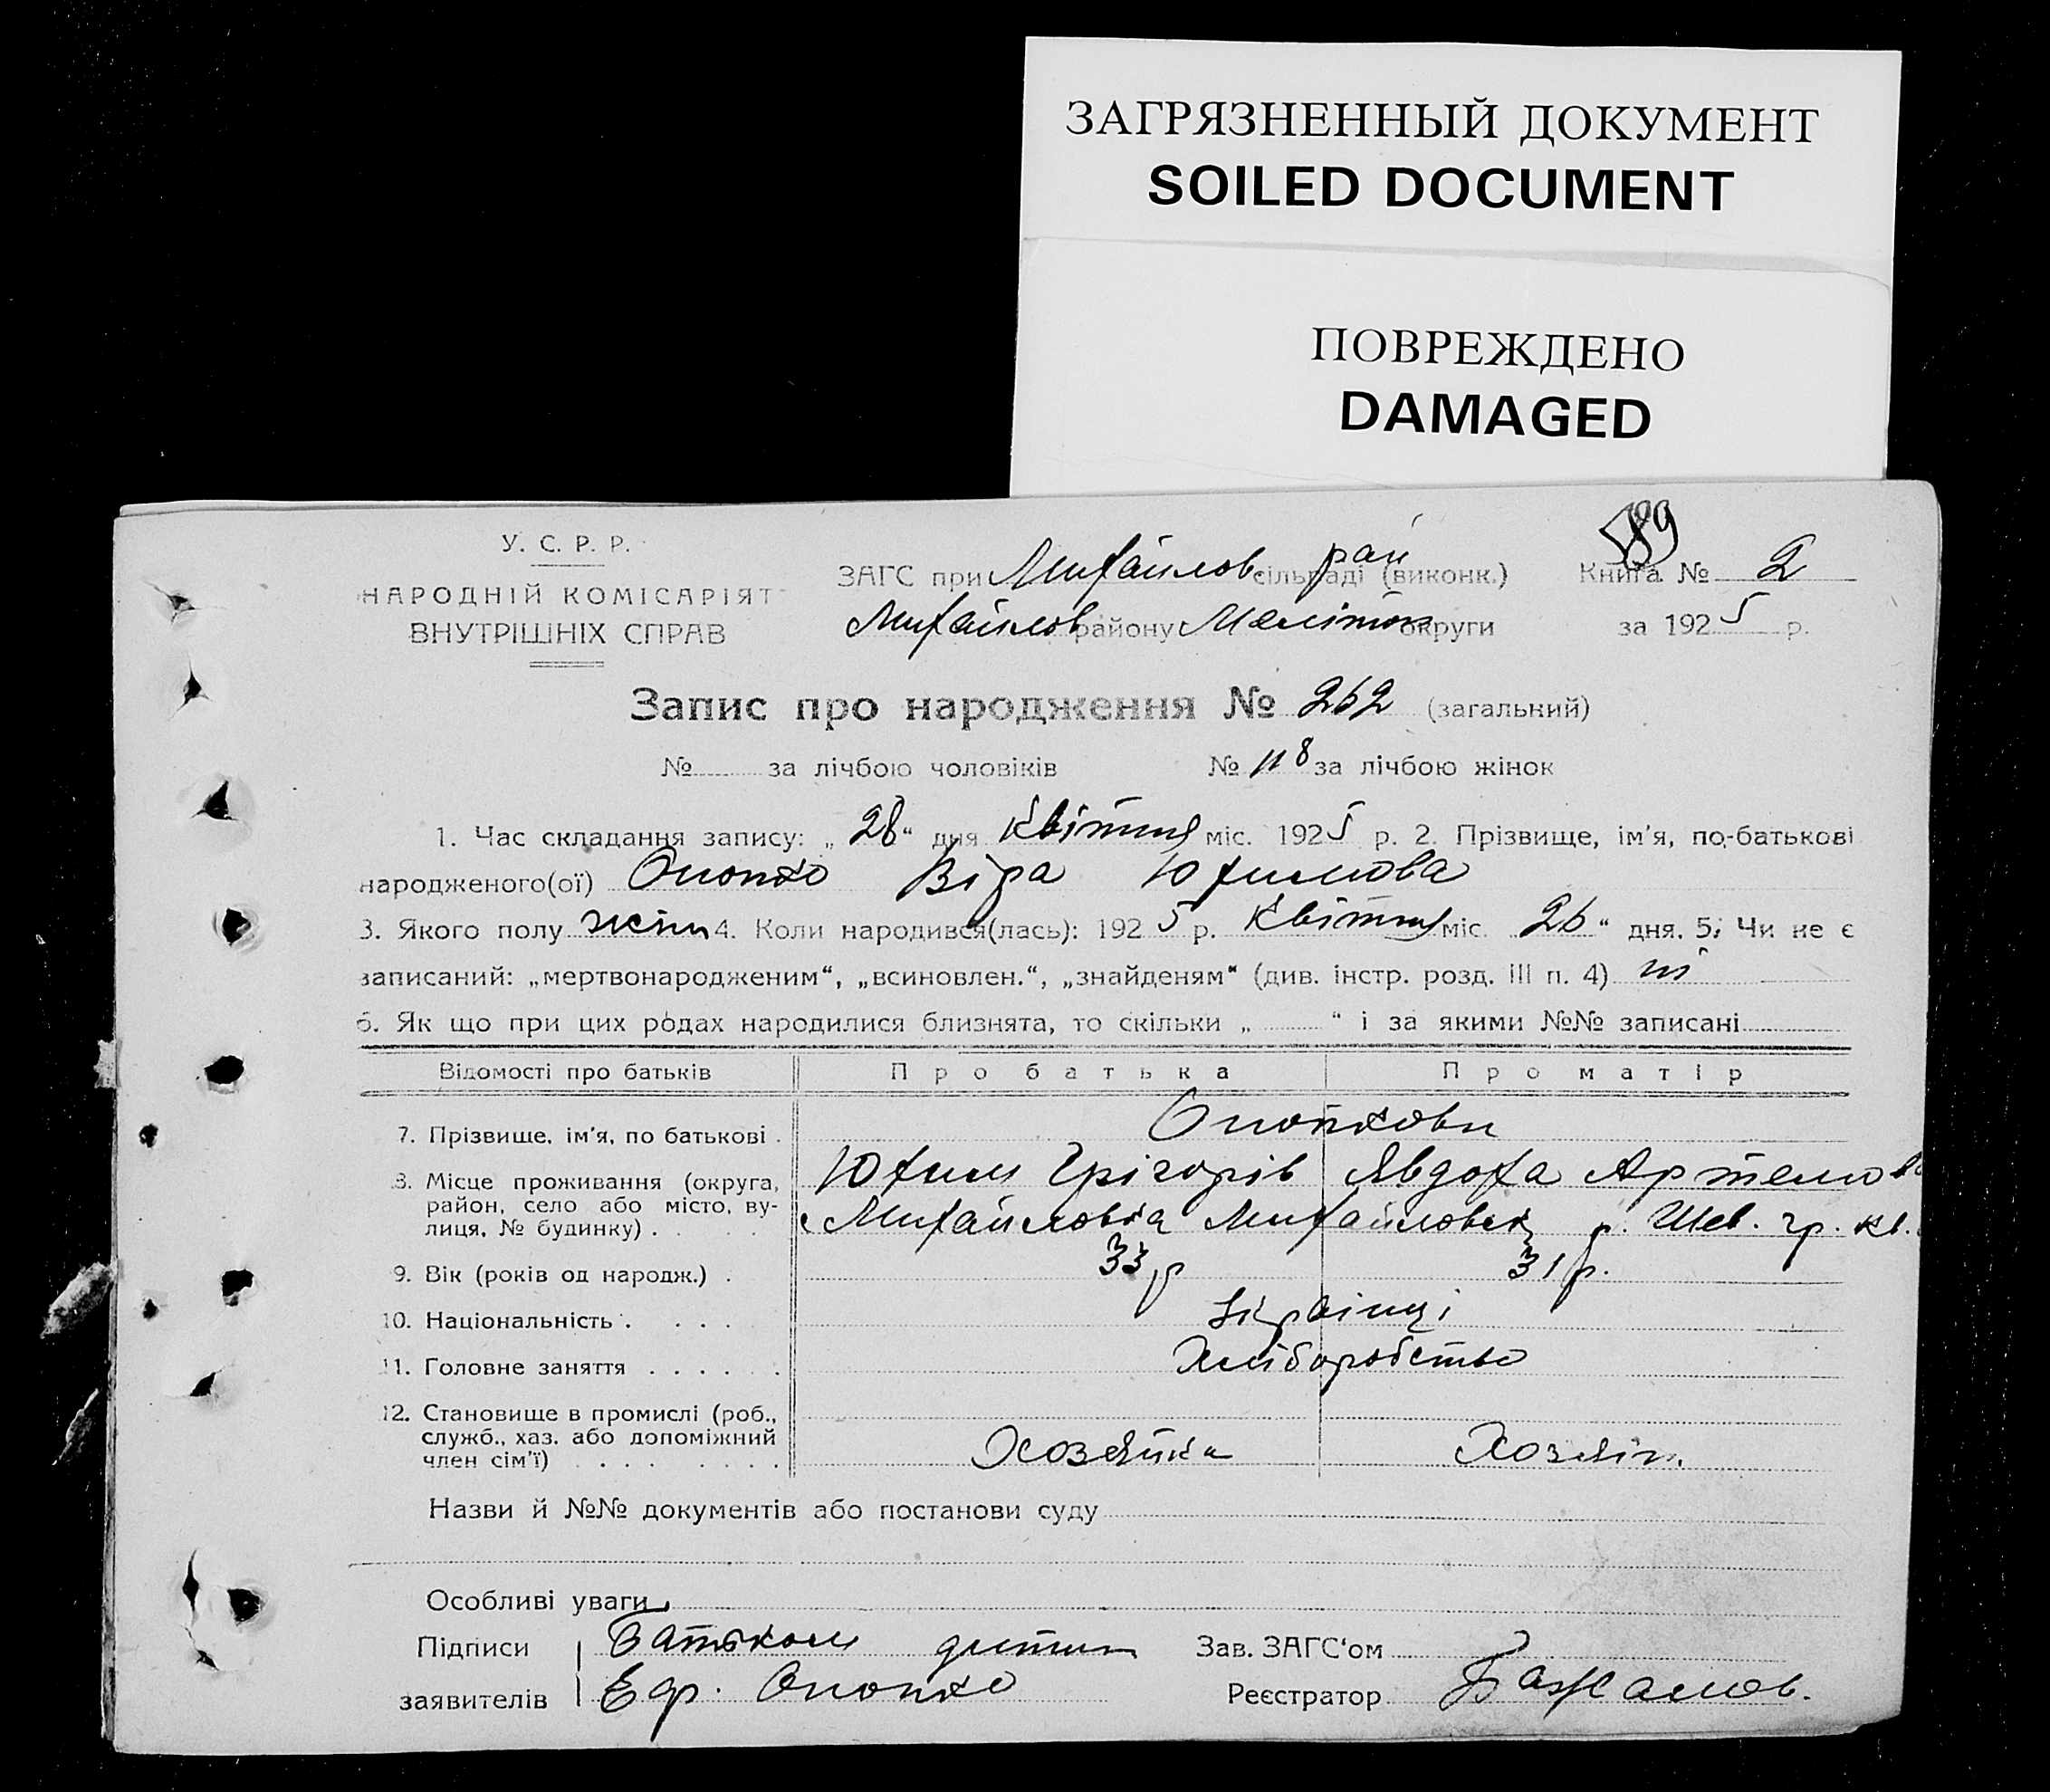 ЗАГРЯЗНЕННЫЙ ДОКУМЕНТ
SOILED DOCUMENT
ПОВРЕЖДЕНО
DAMAGED
У. С. Р. Р.
НАРОДНІЙ КОМІСАРІЯТ
ВНУТРІШНІХ СПРАВ
ЗАГС при Михайлов сільраді рай (виконк.)
Михайлов району Мелітоп округи
589
Книга № 2
за 1925 р.
Запис про народження № 262 (загальний)
№ за лічбою чоловіків № 118 за лічбою жінок
1. Час складання запису: „28“ дня Квітня міс. 1925 р. 2. Прізвище, ім'я, по-батькові
народженого(ої) Опопко Віра Юхимова
3. Якого полу жін 4. Коли народився(лась): 1925 р. Квітня міс. 26 “ дня. 5. Чи не є
записаний: „мертвонародженим“, „всиновлен.“, „знайденям“ (див. інстр. розд. III п. 4) ні
6. Як що при цих родах народилися близнята, то скільки „ “ і за якими №№ записані
Відомості про батьків Про батька Про матір
7. Прізвище, ім'я, по батькові . Опопкови
Юхим Грігорів Явдоха Артемов
8. Місце проживання (округа, район, село або місто, вулиця, № будинку) . с Михайловка Михайловск р. Шев. гр. кв.
9. Вік (років од народж.) . 33 р 31 р.
10. Національність . . . . Українці
11. Головне заняття . . . . . . Хліборобство
12. Становище в промислі (роб., служб., хаз. або допоміжний член сім'ї) . . . . . . . . Хозяйка Хозяін.
Назви й №№ документів або постанови суду
Особливі уваги
Підписи заявителів Батьком дитини
Еф. Опопко
Зав. ЗАГС'ом
Реєстратор Бажанов.